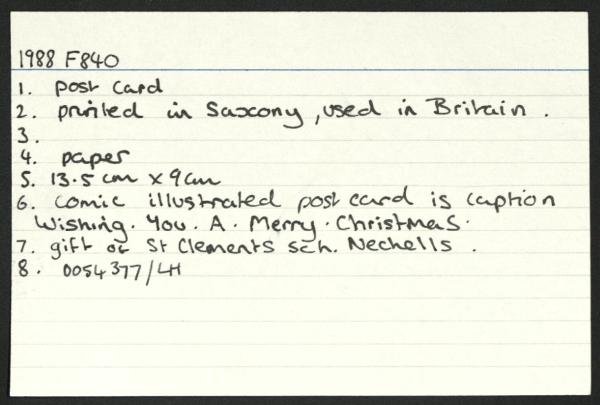 1988 F840
1. post card
2. printed in Saxony, used in Britain.
3.
4. paper
5. 13.5 cm x 9cm
6. comic illustrated post card is caption
Wishing. You. A. Merry. Christmas.
7. gift of St Clements sch. Nechells.
8. 0054377/LH